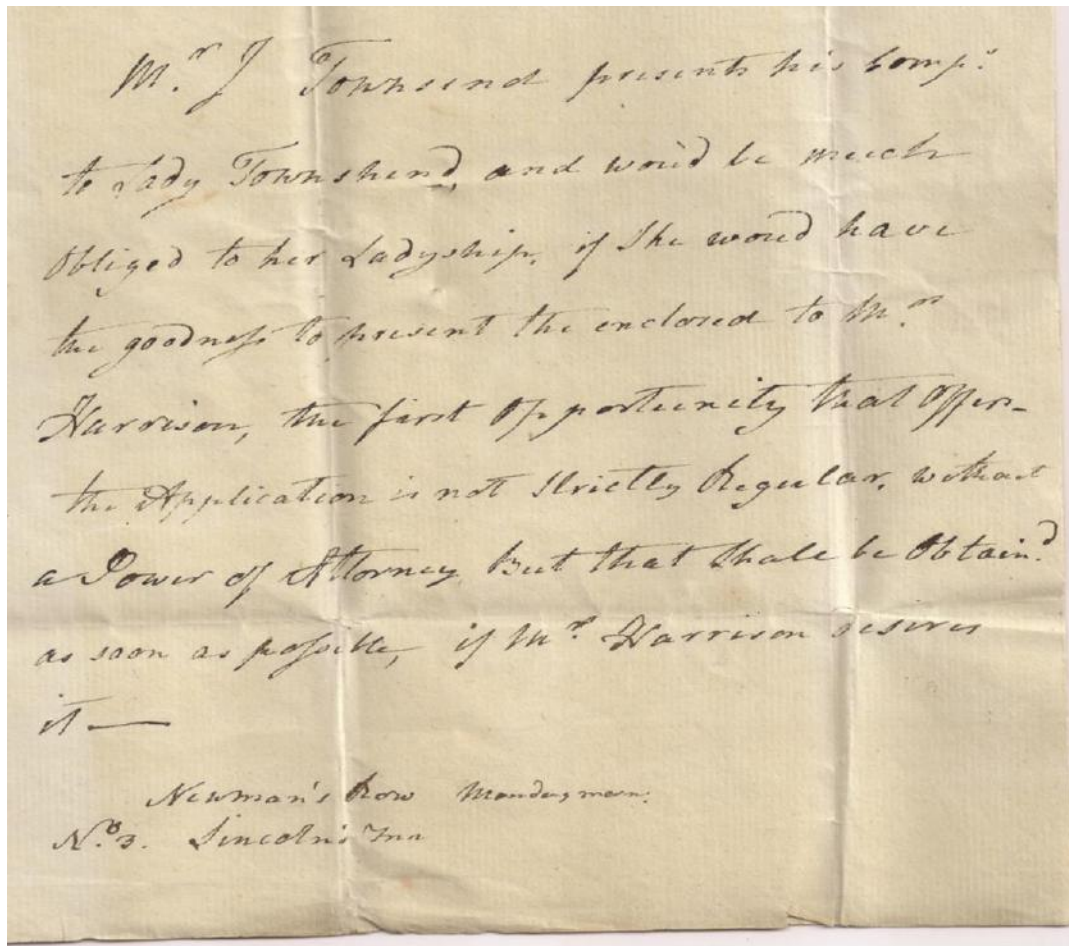 Mr. J Townsend presents his Comps.
to Lady Townshend, and wou'd be much
Obliged to her Ladyship, if She wou'd have
the goodness to present the enclosed to Mrs
Harrison, the first Opportunity that Offers-
the Application is not Strictly Regular, without
a Power of Attorney But that Shall be Obtain'd
as soon as possible, if Mr. Harrison desires
it —
Newman's Row Monday morn:
No. 3. Lincoln's Inn